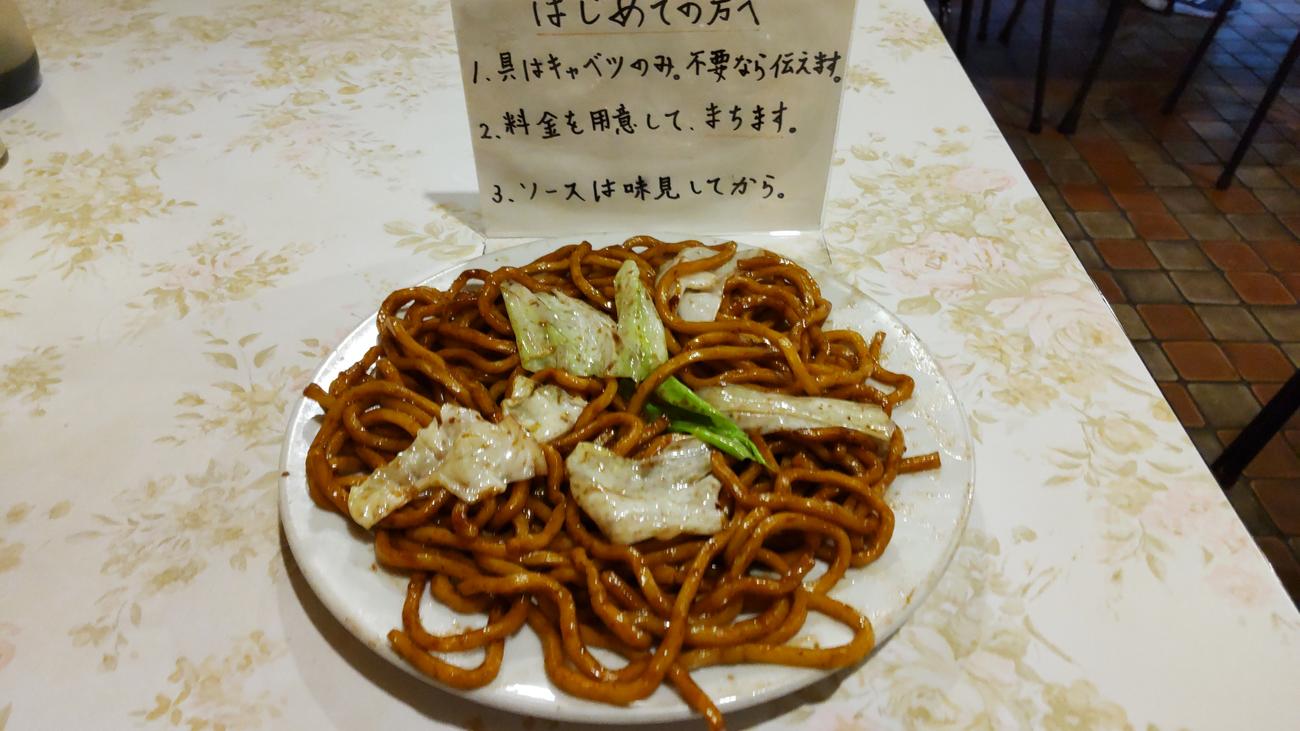 はじめての方へ
1.具はキャベツのみ。不要なら伝えます。
2.料金を用意して、まちます。
3、ソースは味見してから。